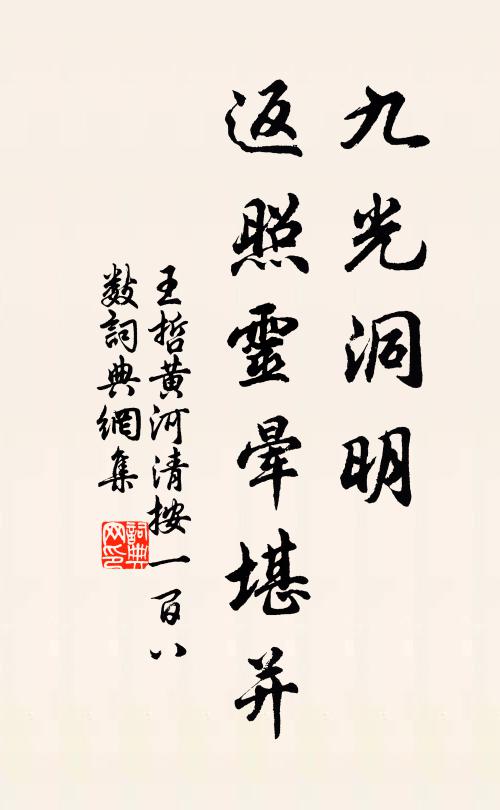 九光洞明
返照靈暈堪并
王哲黄河清按一百八
數詞典網集
詞典网印